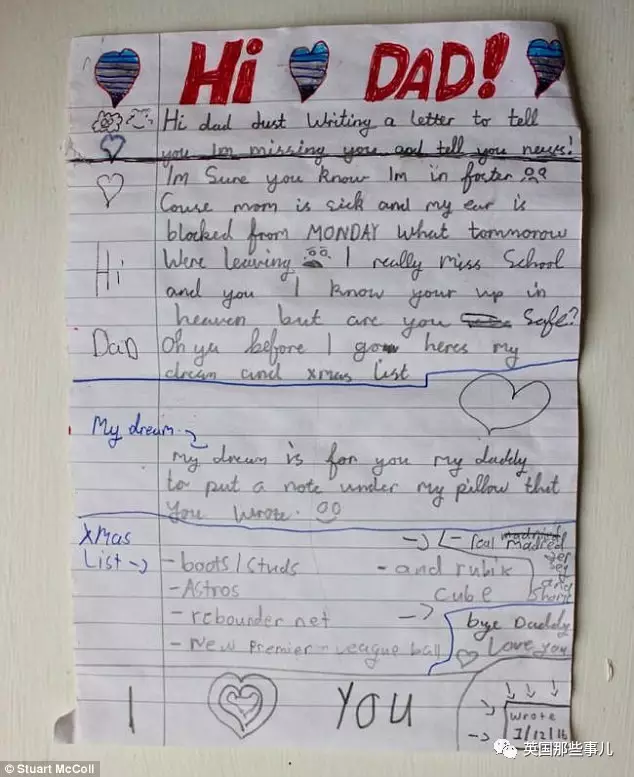 Hi DAD!
Hi dad Just Writing a letter to tell
you Im missing you and tell you news!
Im Sure you know Im in foster
Couse mom is sick and my ear is
blocked from MONDAY What tommorow
Were leaving I really miss School
Hi
and you I know your up in
heaven but are you Safe?
DaD
Oh ya before I go heres my
dream and xmas list
My dream
My dream is for you my daddy
to put a note under my pillow that
you wrote.
Xmas
List
- boots/studs
- Astros
- rebounder net
- New Premier-League ball
- real madread
jersey
and
shorts
- and rubix
cube
bye Daddy
Love you
I YOU
Wrote
1/12/16
© Stuart McColl
英国那些事儿